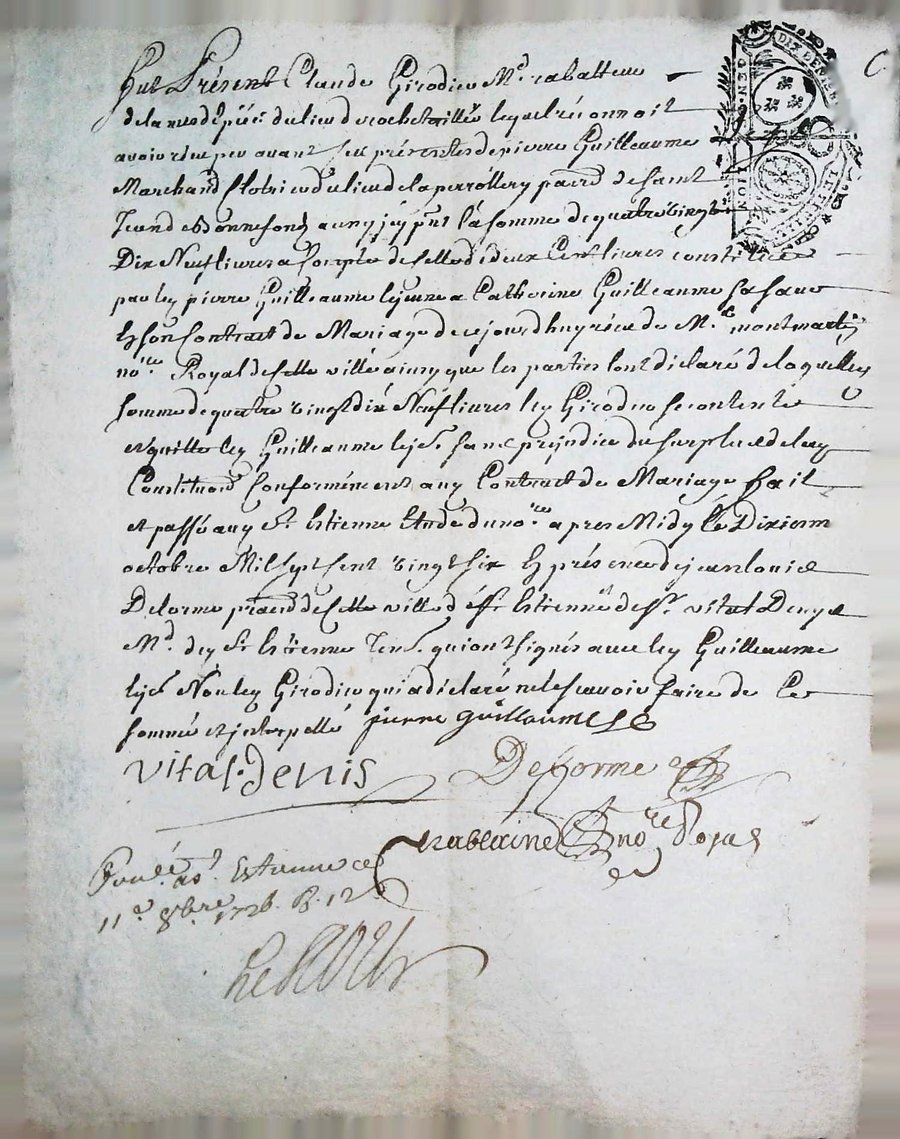 Fut Présent Claude Girodier Md. rabatteur
de la rue de du lieu de rochetaillée lequel réconnoit
avoir reçu peu avant ces présentes de pierre Guilleaume
Marchand Clotrier du lieu de la perrollery parre. de saint
Jean de Bonnefond a ce présent la somme de quatre vingt
Dix Neuf livres a compte de celle de deux Cent livres constituée
par ley pierre Guilleaume lejeune a Catherine Guilleaume sa sœur
En son Contract de Mariage de ce jourd'huy récu de Me. montmartin
nore. Royal de cette ville ainsy que les parties l'ont déclaré de laquelle
somme de quatre vingt dix Neuf livres ley Girodier se contente
et quitte ley Guilleaume leje. sans préjudice du surplus de lad
Constituon. Conformément aud Contract de Mariage fait
et passé aud St. Estienne Etude du nore. apres Midy le Dixieme
octobre Mil sept cent vingt six En présence de jean louis
Delorme pratd de cette ville d St. Estienne et de sr. vital Denys
Md. dud St. Estienne Tem. qui ont signés avec ley Guilleaume
leje. Non ley Girodier qui a déclaré ne le scavoir faire de Ce
sommé et interpellé pierre guillaume
vital. denis Delorme
nore Royal
Conlé. a st. Estienne ce
11e. 8bre. 1726. R. 12s
DIX DEN.
GEN.
LION